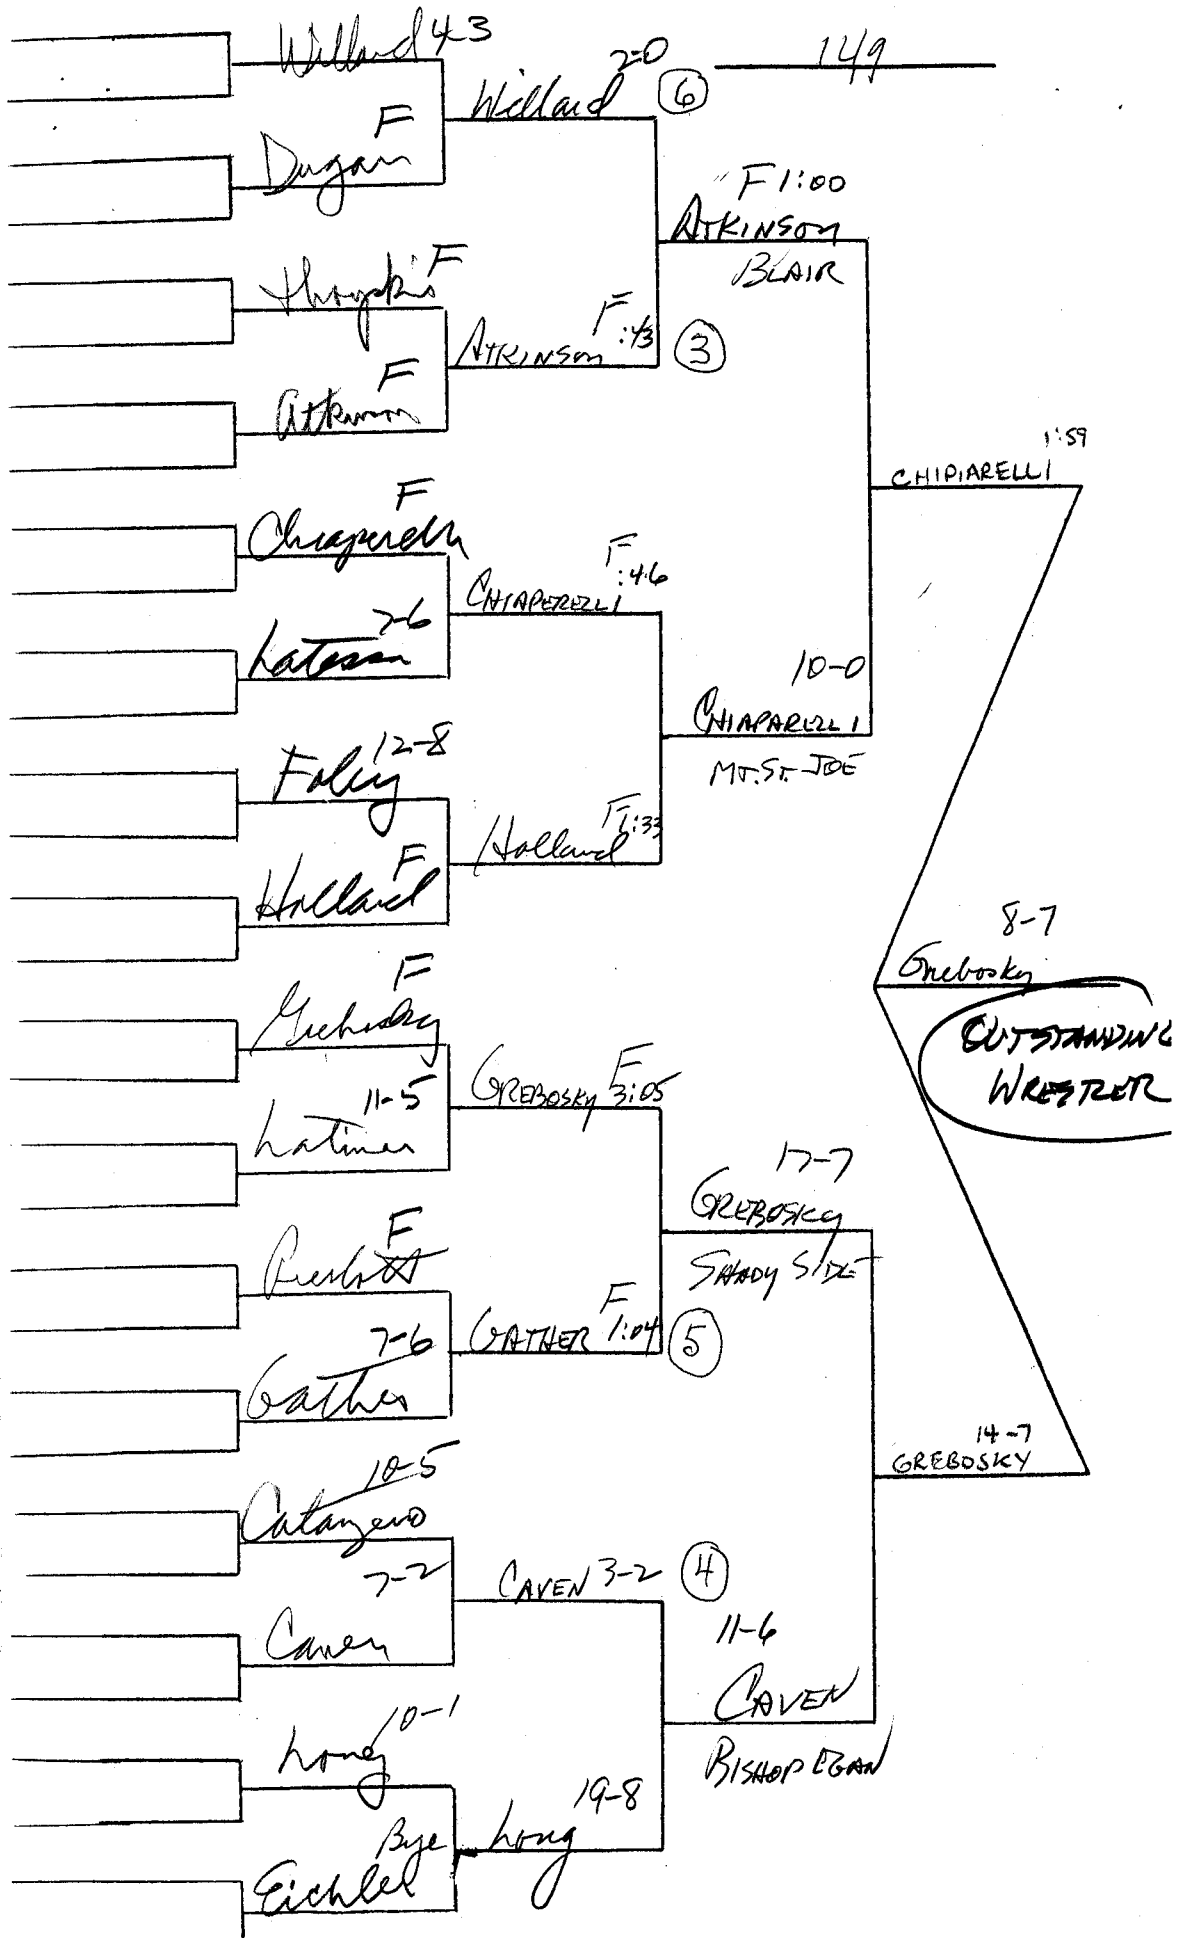 149
Willard 4-3
F
Dugan
Willard 2-0
6
F
F
Atkinson
ATKINSON F :43
3
F 1:00
ATKINSON
BLAIR
F
Chiaperelli
7-6
Latessa
CHIAPERELLI F :46
12-8
Foley
F
Holland
Holland F 1:33
10-0
CHIAPARELLI
MT. ST. JOE
1:59
CHIPIARELLI
8-7
Grebosky
OUTSTANDING
WRESTLER
F
Grebosky
11-5
Latimer
GREBOSKY F 3:05
F
7-6
Gather
GATHER F 1:04
5
17-7
GREBOSKY
SHADY SIDE
14-7
GREBOSKY
10-5
Catanzero
7-2
Caven
CAVEN 3-2
4
10-1
Long
Bye
Eichlel
Long 19-8
11-6
CAVEN
BISHOP EGAN